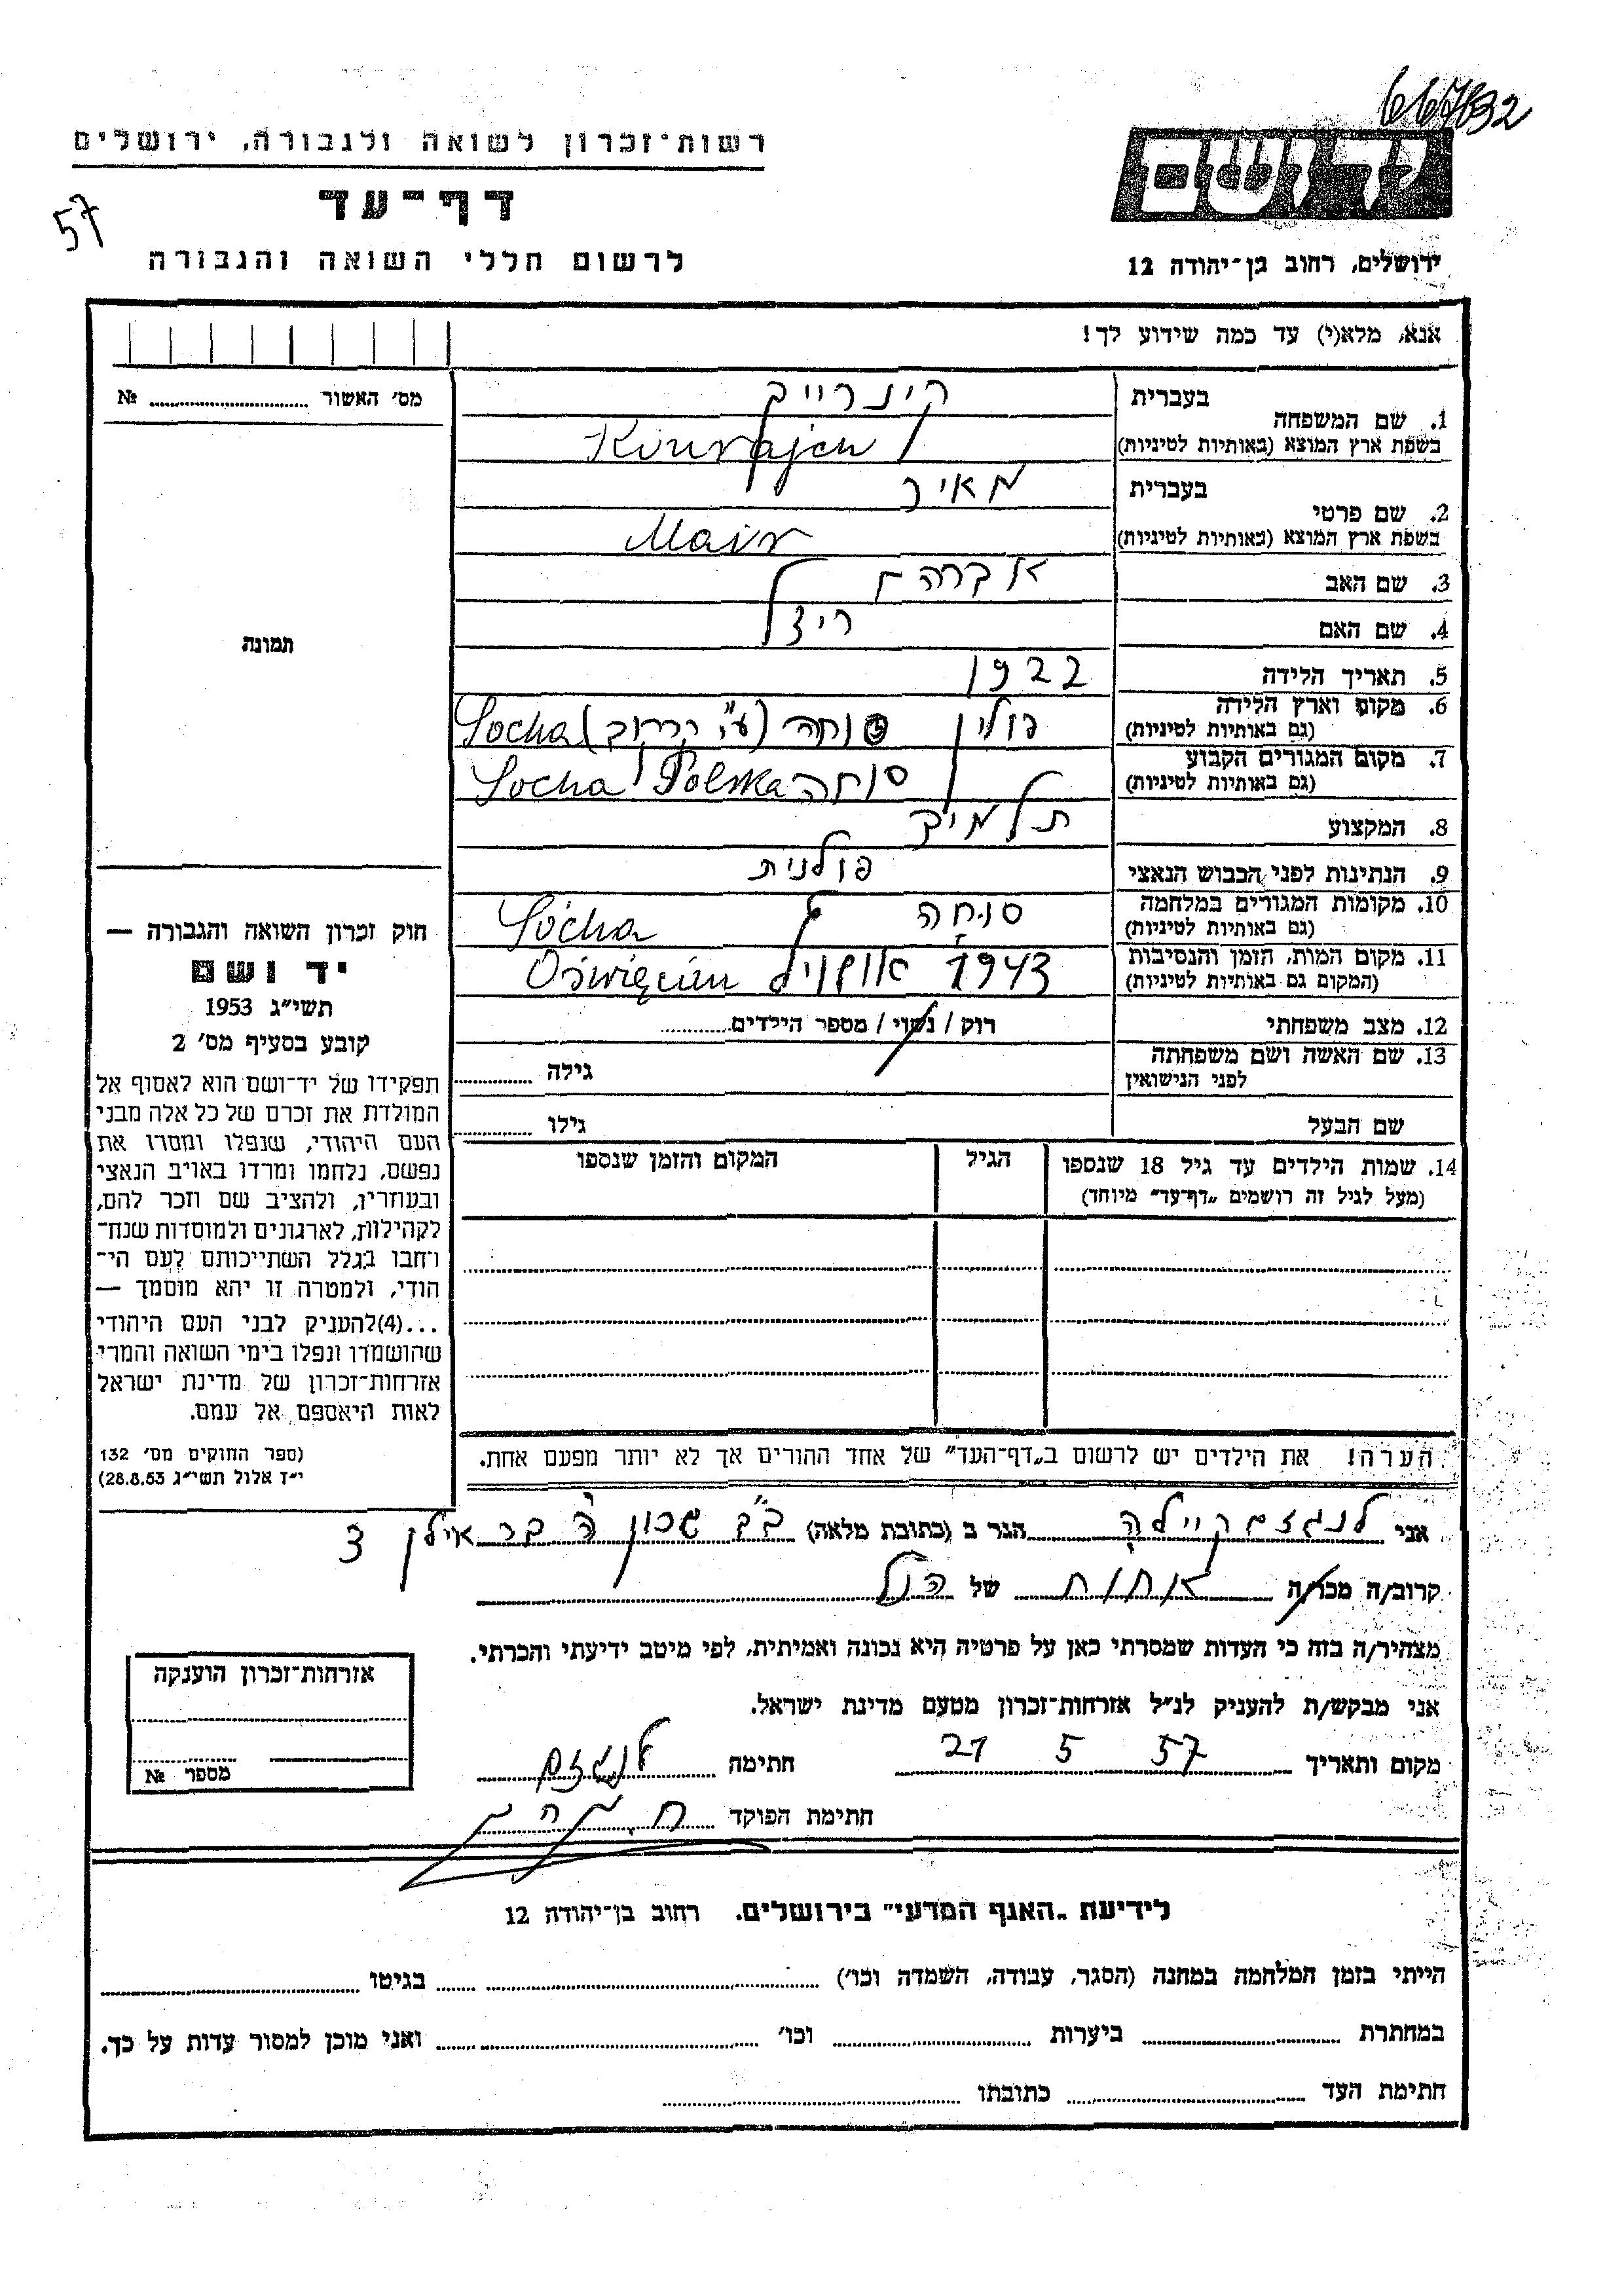 667832
רשות־זכרון לשואה ולגבורה, ירושלים
יד ושם
דף־עד
57
לרשום חללי השואה והגבורה
ירושלים, רחוב בן־יהודה 12
אנא, מלא(י) עד כמה שידוע לך!
מס׳ האשור № 
1. שם המשפחה
בעברית
קינרייך
בשפת ארץ המוצא (באותיות לטיניות)
2. שם פרטי
בעברית
מאיר
בשפת ארץ המוצא (באותיות לטיניות) Mair
3. שם האב אברהם
4. שם האם רייצל
5. תאריך הלידה 1922
6. מקום וארץ הלידה
(גם באותיות לטיניות)
פולין סוחה (ע"י קרקוב) Socha
7. מקום המגורים הקבוע
(גם באותיות לטיניות)
סוחה Socha Polska
8. המקצוע תלמיד
9. הנתינות לפני הכבוש הנאצי פולנית
10. מקומות המגורים במלחמה
(גם באותיות לטיניות)
סוחה Socha
11. מקום המות, הזמן והנסיבות
(המקום גם באותיות לטיניות)
1943 Oświęcim
12. מצב משפחתי רוק / נשוי / מספר הילדים
13. שם האשה ושם משפחתה
לפני הנישואין
גילה
שם הבעל גילו
14. שמות הילדים עד גיל 18 שנספו
(מעל לגיל זה רושמים „דף־עד" מיוחד)
הגיל
המקום והזמן שנספו
הערה! את הילדים יש לרשום ב„דף־העד" של אחד ההורים אך לא יותר מפעם אחת.
תמונה
חוק זכרון השואה והגבורה —
יד ושם
תשי״ג 1953
קובע בסעיף מס׳ 2
תפקידו של יד־ושם הוא לאסוף אל
המולדת את זכרם של כל אלה מבני
העם היהודי, שנפלו ומסרו את
נפשם, נלחמו ומרדו באויב הנאצי
ובעוזריו, ולהציב שם וזכר להם,
לקהילות, לארגונים ולמוסדות שנח־
רבו בגלל השתייכותם לעם הי־
הודי, ולמטרה זו יהא מוסמך —
...(4)להעניק לבני העם היהודי
שהושמדו ונפלו בימי השואה והמרי
אזרחות־זכרון של מדינת ישראל
לאות היאספם אל עמם.
(ספר החוקים מס׳ 132
י״ז אלול תשי״ג 28.8.53)
אני לנגזם קיילה הגר ב (כתובת מלאה) ב"ב שכון ה' בר אילן 3
קרוב/ה מכר/ה אחות של הנ"ל
מצהיר/ה בזה כי העדות שמסרתי כאן על פרטיה היא נכונה ואמיתית, לפי מיטב ידיעתי והכרתי.
אני מבקש/ת להעניק לנ״ל אזרחות־זכרון מטעם מדינת ישראל.
מקום ותאריך 21 5 57 חתימה לנגזם
חתימת הפוקד
אזרחות־זכרון הוענקה
מספר №
לידיעת „האגף המדעי" בירושלים. רחוב בן־יהודה 12
הייתי בזמן המלחמה במחנה (הסגר, עבודה, השמדה וכו׳) בגיטו
במחתרת ביערות וכו׳ ואני מוכן למסור עדות על כך.
חתימת העד כתובתו